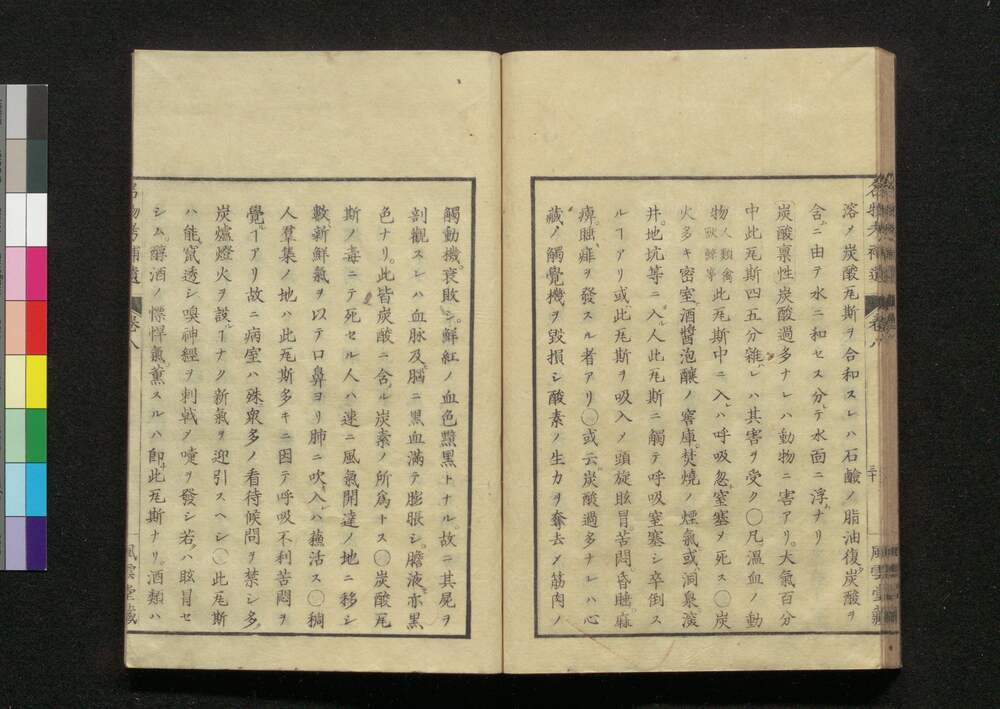 溶ノ炭酸瓦斯ヲ合和スレハ石鹸ノ脂油復炭酸ヲ
含ニ由テ水ニ和セス分テ水面ニ浮ナリ
炭酸禀性炭酸過多ナレハ動物ニ害アリ大氣百分
中此瓦斯四五分雜レハ其害ヲ受ク〇凡溫血ノ動
物人類禽獸鯨等此瓦斯中ニ入ハ呼吸忽窒塞ヲ死ス〇炭
火多キ密室酒醬泡釀ノ窖庫焚燒ノ煙氣或洞泉濵
井地坑等ニ入人此瓦斯ニ觸テ呼吸室塞シ卒倒ス
ルヿアリ或此瓦斯ヲ吸入メ頭旋眩冒苦悶昏睡麻
痺䐈痱ヲ發スル者アリ〇或云炭酸過多ナレハ心
藏ノ觸覺機ヲ毀損シ酸素ノ生力ヲ奪去メ筋肉ノ
觸動機衰敗シ鮮紅ノ血色黯黑トナル故ニ其屍ヲ
剖觀スレハ血脉及腦ニ黑血滿テ膨脹シ膽液亦黑
色ナリ此皆炭酸ニ含ル炭素ノ所爲トス〇炭酸瓦
斯ノ毒ニテ死セル人ハ速ニ風氣開達ノ地ニ移シ
數新鮮氣ヲ以テ口鼻ヨリ肺ニ吹入レハ蘓活ス〇稠
人羣集ノ地ハ此瓦斯多キニ因テ呼吸不利苦悶ヲ
覺ルヿアリ故ニ病室ハ殊衆多ノ看待候問ヲ禁シ多
炭爐燈火ヲ設ルヿナク新氣ヲ迎引スヘシ〇此瓦斯
ハ能竄透シ嗅神經ヲ刺戟メ嚏ヲ發シ若クハ眩冒セ
シム醇酒ノ慓悍氣薰スルハ卽此瓦斯ナリ酒類ハ
風雲堂藏